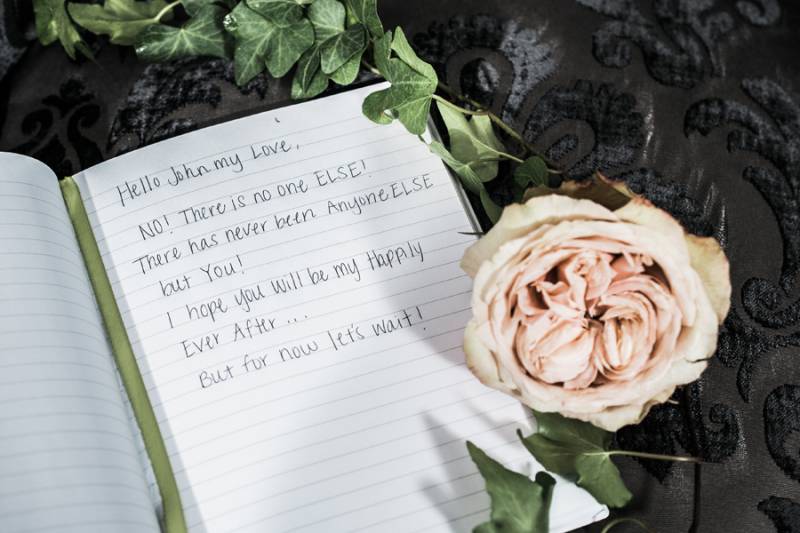 Hello John my Love,
NO! There is no one ELSE!
There has never been Anyone ELSE
but You!
I hope you will be my Happily
Ever After...
But for now let's wait!